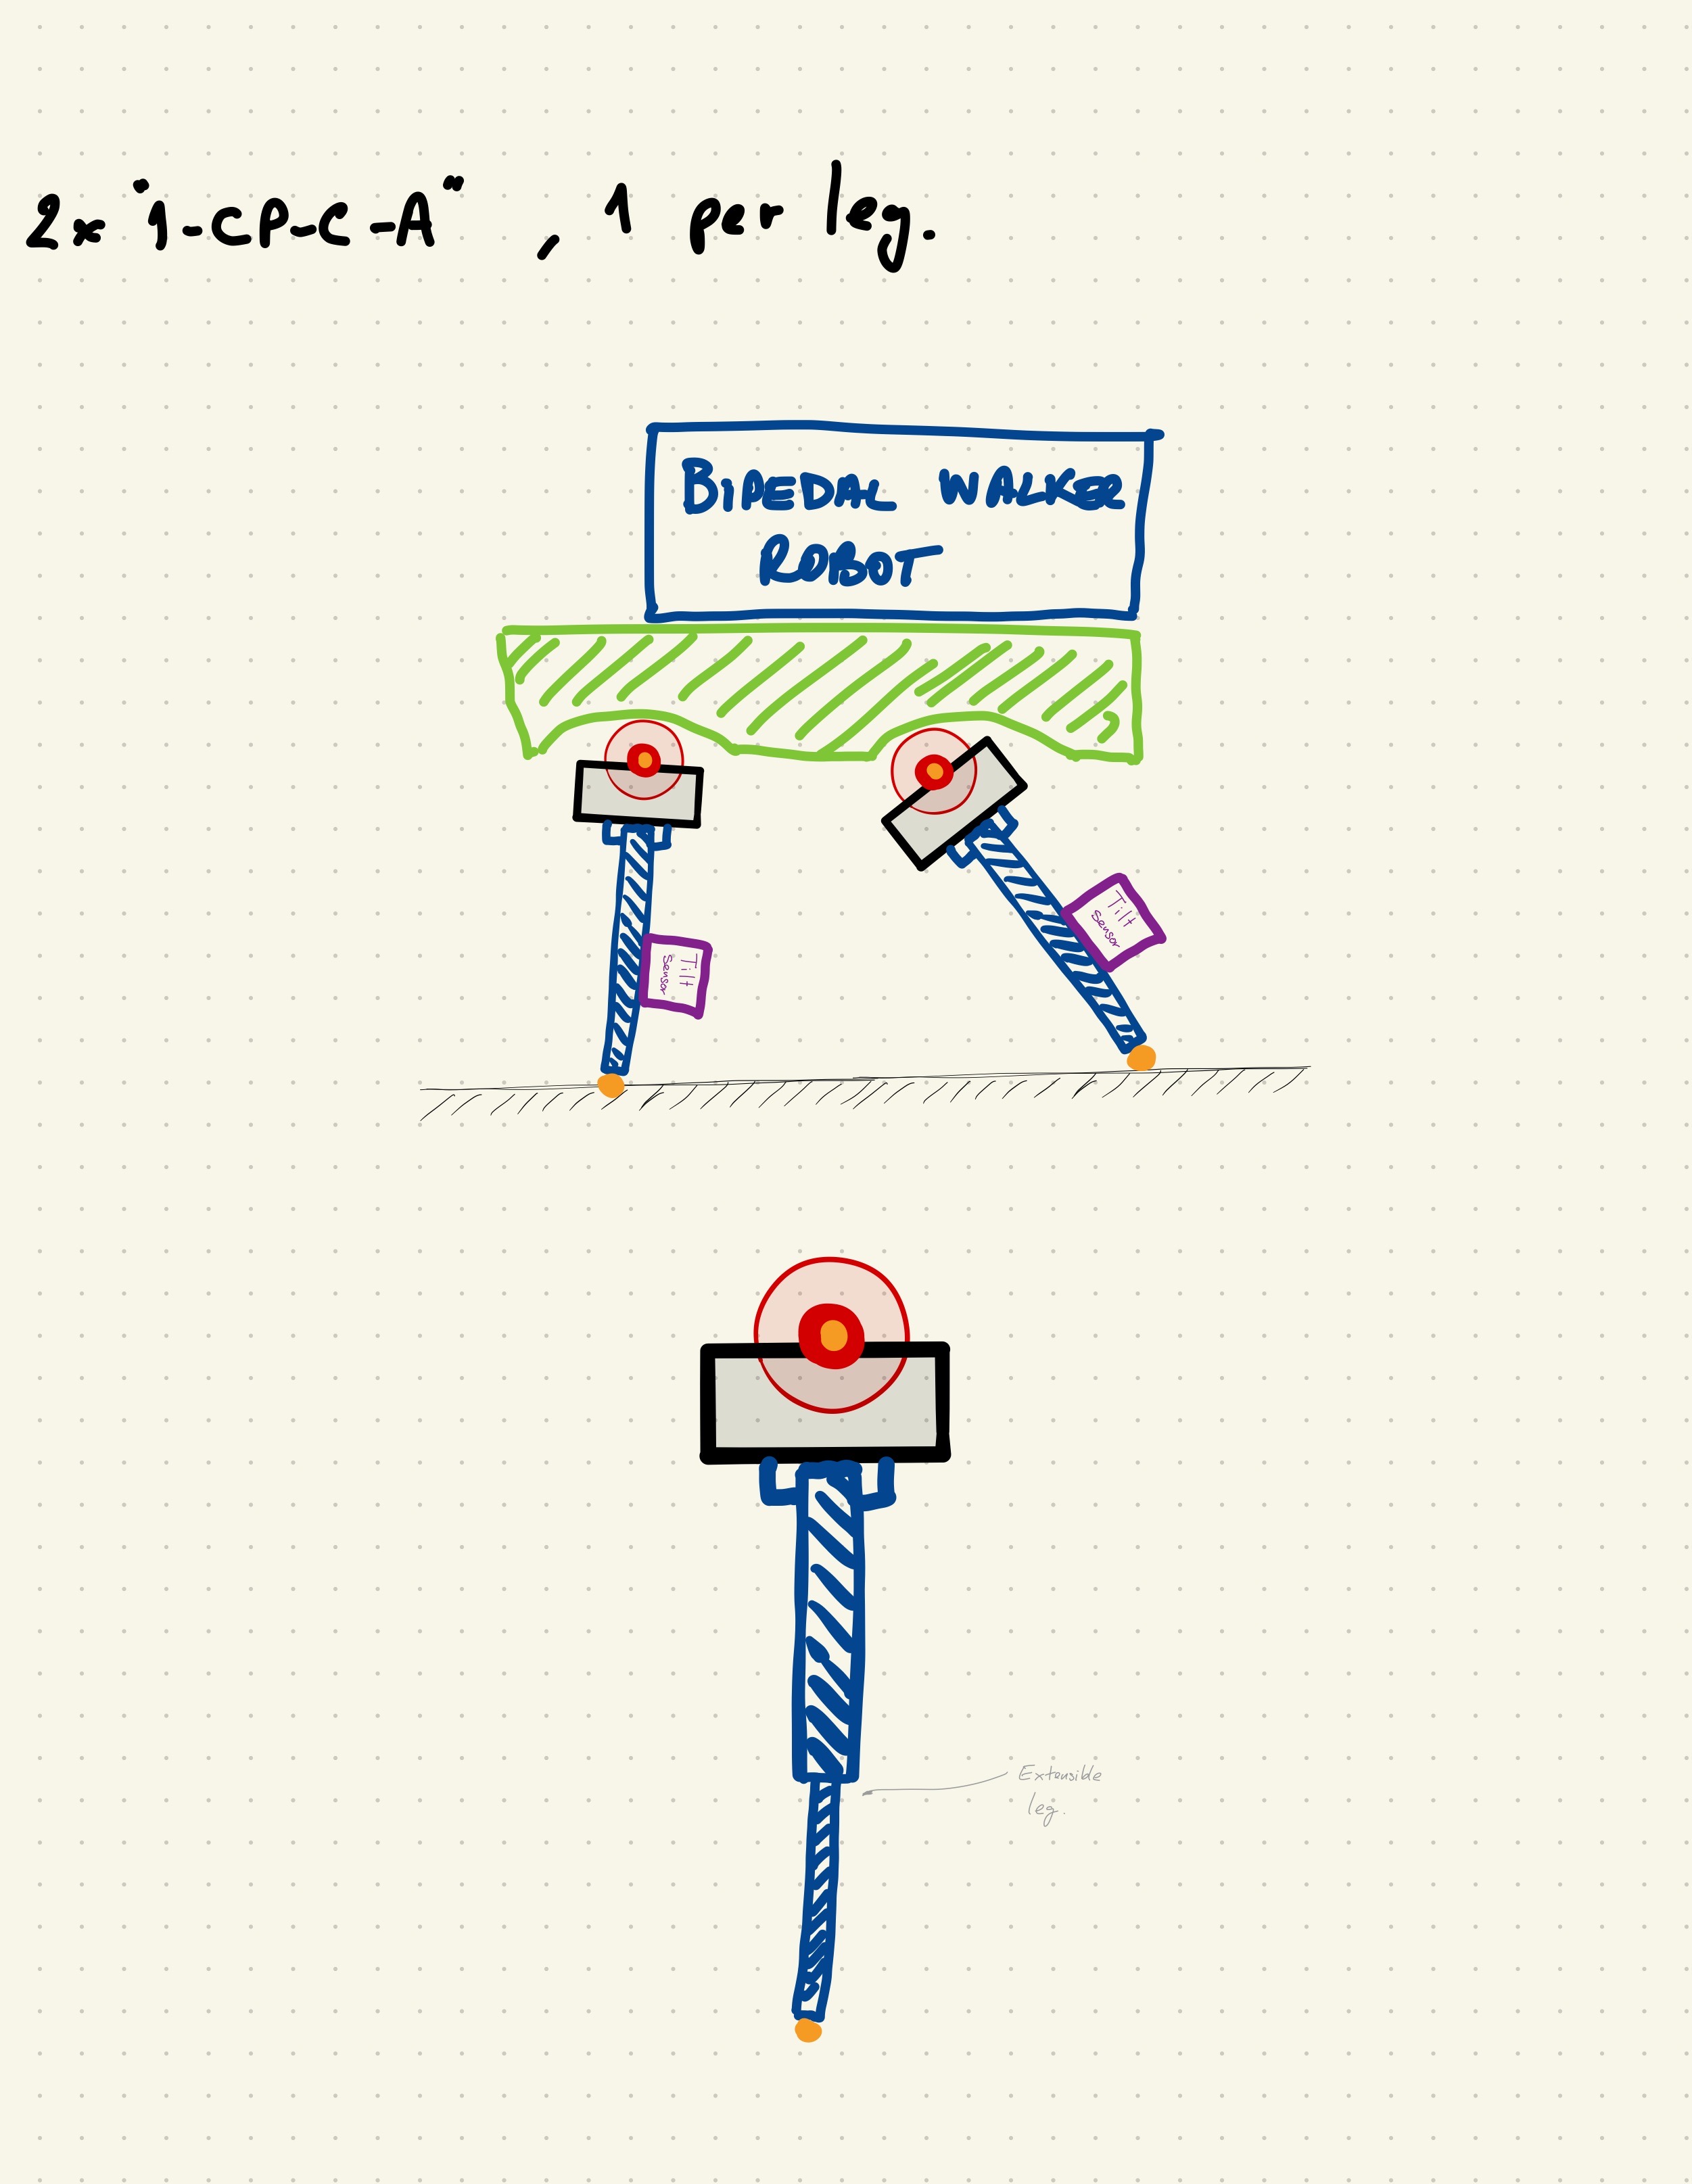 2x "1-CP-C-A", 1 per leg.
BIPEDAL WALKER
ROBOT
Tilt
Sensor
Tilt
Sensor
Extensible
leg.